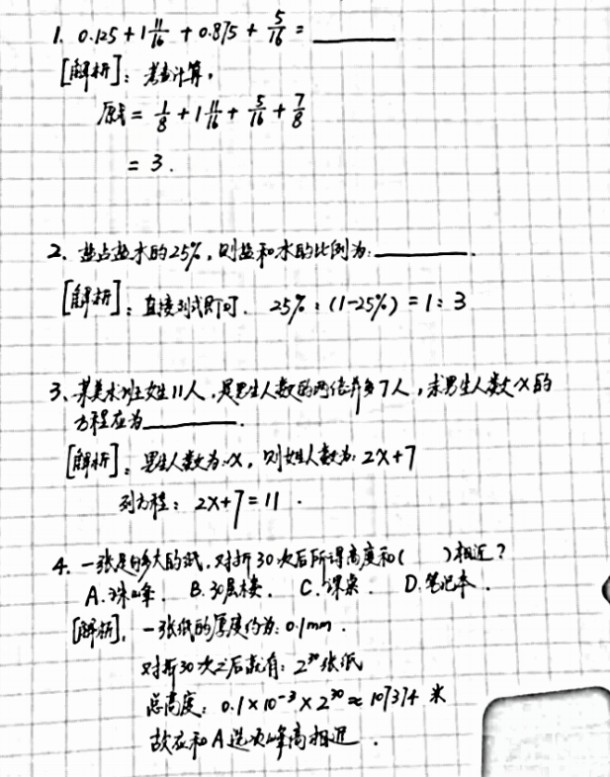 1. 0.125 + 1 11/16 + 0.875 + 5/16 = ______
[解析]: 考查计算,
原式 = 1/8 + 1 11/16 + 5/16 + 7/8
= 3.
2. 盐占盐水的25%, 则盐和水的比例为: ______.
[解析]: 直接列式即可. 25% : (1-25%) = 1 : 3
3. 某美术班女生11人, 是男生人数的两倍并多7人, 求男生人数x的
方程应为______.
[解析]: 男生人数为:x, 则女生人数为: 2x+7
列方程: 2x+7=11.
4. 一张足够大的纸, 对折30次后所得高度和( )相近?
A.珠峰. B.30层楼. C.课桌. D.笔记本.
[解析], 一张纸的厚度约为: 0.1mm.
对折30次之后就有: 2³⁰张纸
总高度: 0.1×10⁻³×2³⁰≈107374 米
故应和A选项峰高相近.